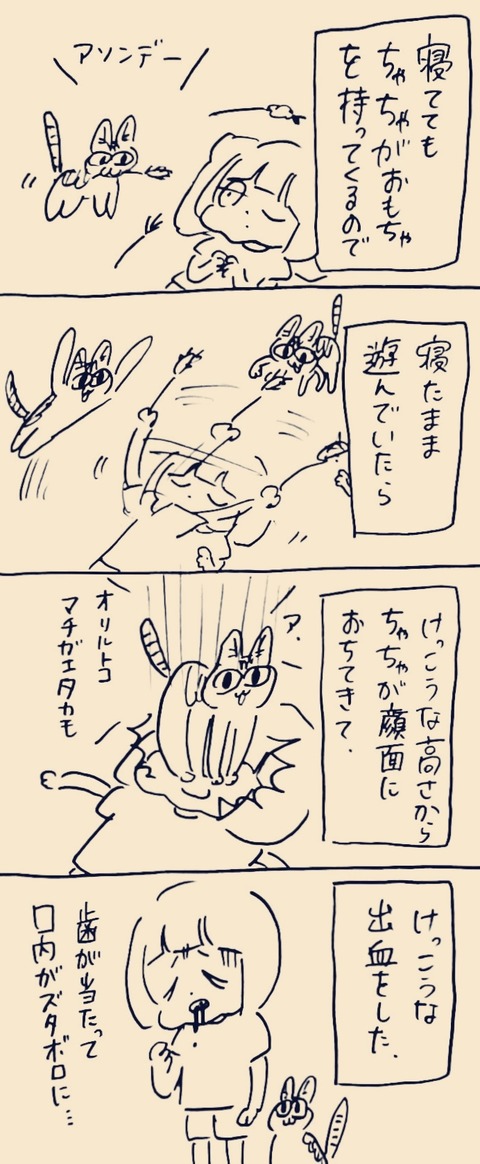 寝てても
ちゃちゃがおもちゃ
を持ってくるので
アソンデー
寝たまま
遊んでいたら
けっこうな高さから
ちゃちゃが顔面に
おちてきて.
ア.
オリルトコ
マチガエタカモ
けっこうな
出血をした.
歯が当たって
口内がズタボロに…